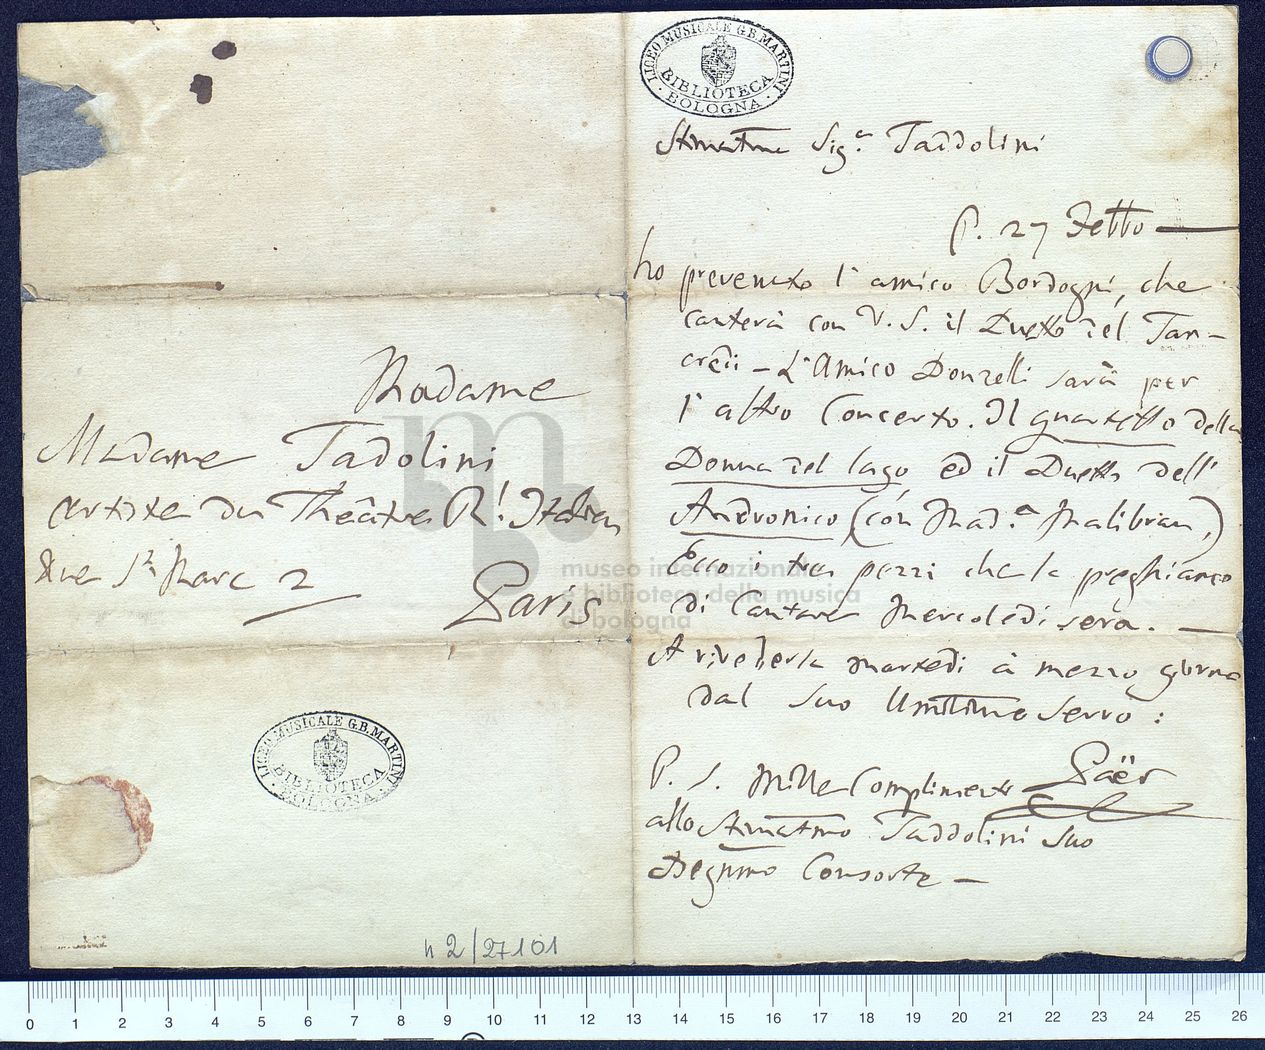 LICEO MUSICALE G.B. MARTINI
BIBLIOTECA
BOLOGNA
Stimatma Sig.a Taddolini
P. 27 7etto
ho prevenuto l'amico Bordogni, che
canterà con V. S. il Duetto del Tan-
credi - L'Amico Donzelli sarà per
l'altro Concerto. Il quartetto della
Donna del lago ed il Duetto dell'
Andronico (con Mad.a Malibran,)
Ecco i tre pezzi che la preghiamo
di Cantare Mercoledi sera.
A rivederla martedi à mezzo giorno
dal suo Umilimo servo:
Päer
P. S. Mille Complimenti
allo Stimatmo Taddolini suo
Degnmo Consorte -
Madame
Madame Tadolini
artiste du Théâtre R.l Italien
Rue St Marc 2
Paris
LICEO MUSICALE G.B. MARTINI
BIBLIOTECA
BOLOGNA
n 2/27101
museo internazionale
e biblioteca della musica
di bologna
0 1 2 3 4 5 6 7 8 9 10 11 12 13 14 15 16 17 18 19 20 21 22 23 24 25 26